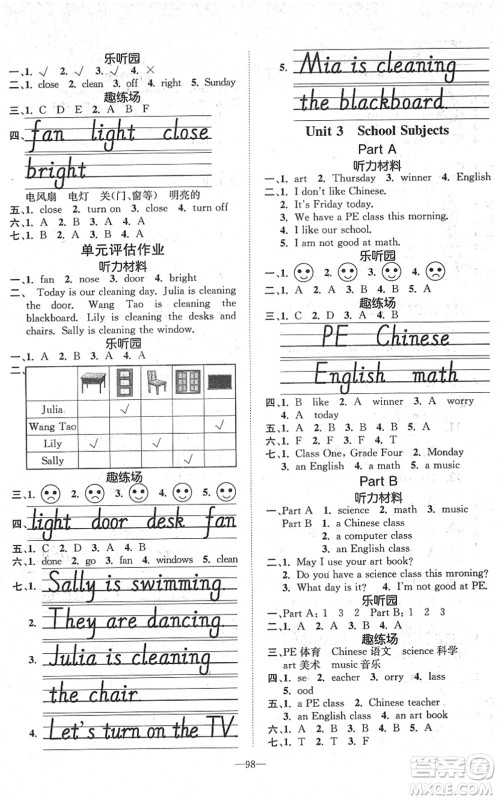 乐听园
一、1. √ 2. √ 3. √ 4. ×
二、1. close 2. clean 3. off 4. right 5. Sunday
趣练场
三、1. C D E 2. A B F
四、fan light close
bright
电风扇 电灯 关(门、窗等) 明亮的
五、1. close 2. turn on 3. close 4. turn off
六、1. A 2. A 3. B 4. A
七、1. B 2. A 3. A 4. B
单元评估作业
听力材料
一、1. fan 2. nose 3. door 4. bright
二、Today is our cleaning day. Julia is cleaning
the door. Wang Tao is cleaning the
blackboard. Lily is cleaning the desks and
chairs. Sally is cleaning the window.
乐听园
一、1. A 2. B 3. A 4. A
二、
Julia √
Wang Tao √
Lily √ √
Sally √
趣练场
三、1. 2. 3. 4. 5.
四、light door desk fan
五、1. C 2. D 3. A 4. B
六、1. done 2. go 3. fan 4. windows 5. clean
七、1. Sally is swimming.
2. They are dancing.
3. Julia is cleaning
the chair.
4. Let's turn on the TV.
5. Mia is cleaning
the blackboard.
Unit 3 School Subjects
Part A
听力材料
一、1. art 2. Thursday 3. winner 4. English
二、1. I don't like Chinese.
2. It's Friday today.
3. We have a PE class this morning.
4. I like our school.
5. I am not good at math.
乐听园
一、1. 2. 3. 4. 5.
二、1. A 2. B 3. A 4. B 5. A
趣练场
三、PE Chinese
English math
四、1. B like 2. A winner 3. A worry
4. A today
五、1. A 2. B 3. A 4. B
六、1. F 2. F 3. F 4. T
七、1. Class One, Grade Four 2. Monday
3. an English 4. a math 5. a music
Part B
听力材料
一、Part A 1. science 2. math 3. music
Part B 1. a Chinese class
2. a computer class
3. an English class
二、1. May I use your art book?
2. Do you have a science class this mroning?
3. What day is it? 4. I'm not good at PE.
乐听园
一、Part A: 1 3 2 Part B: 1 2 3
二、1. B 2. A 3. A 4. B
趣练场
三、PE 体育 Chinese 语文 science 科学
art 美术 music 音乐
四、1. se 2. eacher 3. orry 4. lass
5. ood
五、1. a PE class 2. Chinese teacher
3. an English class 4. an art book
六、1. B 2. B 3. A 4. B 5. A
七、1. T 2. T 3. F
98